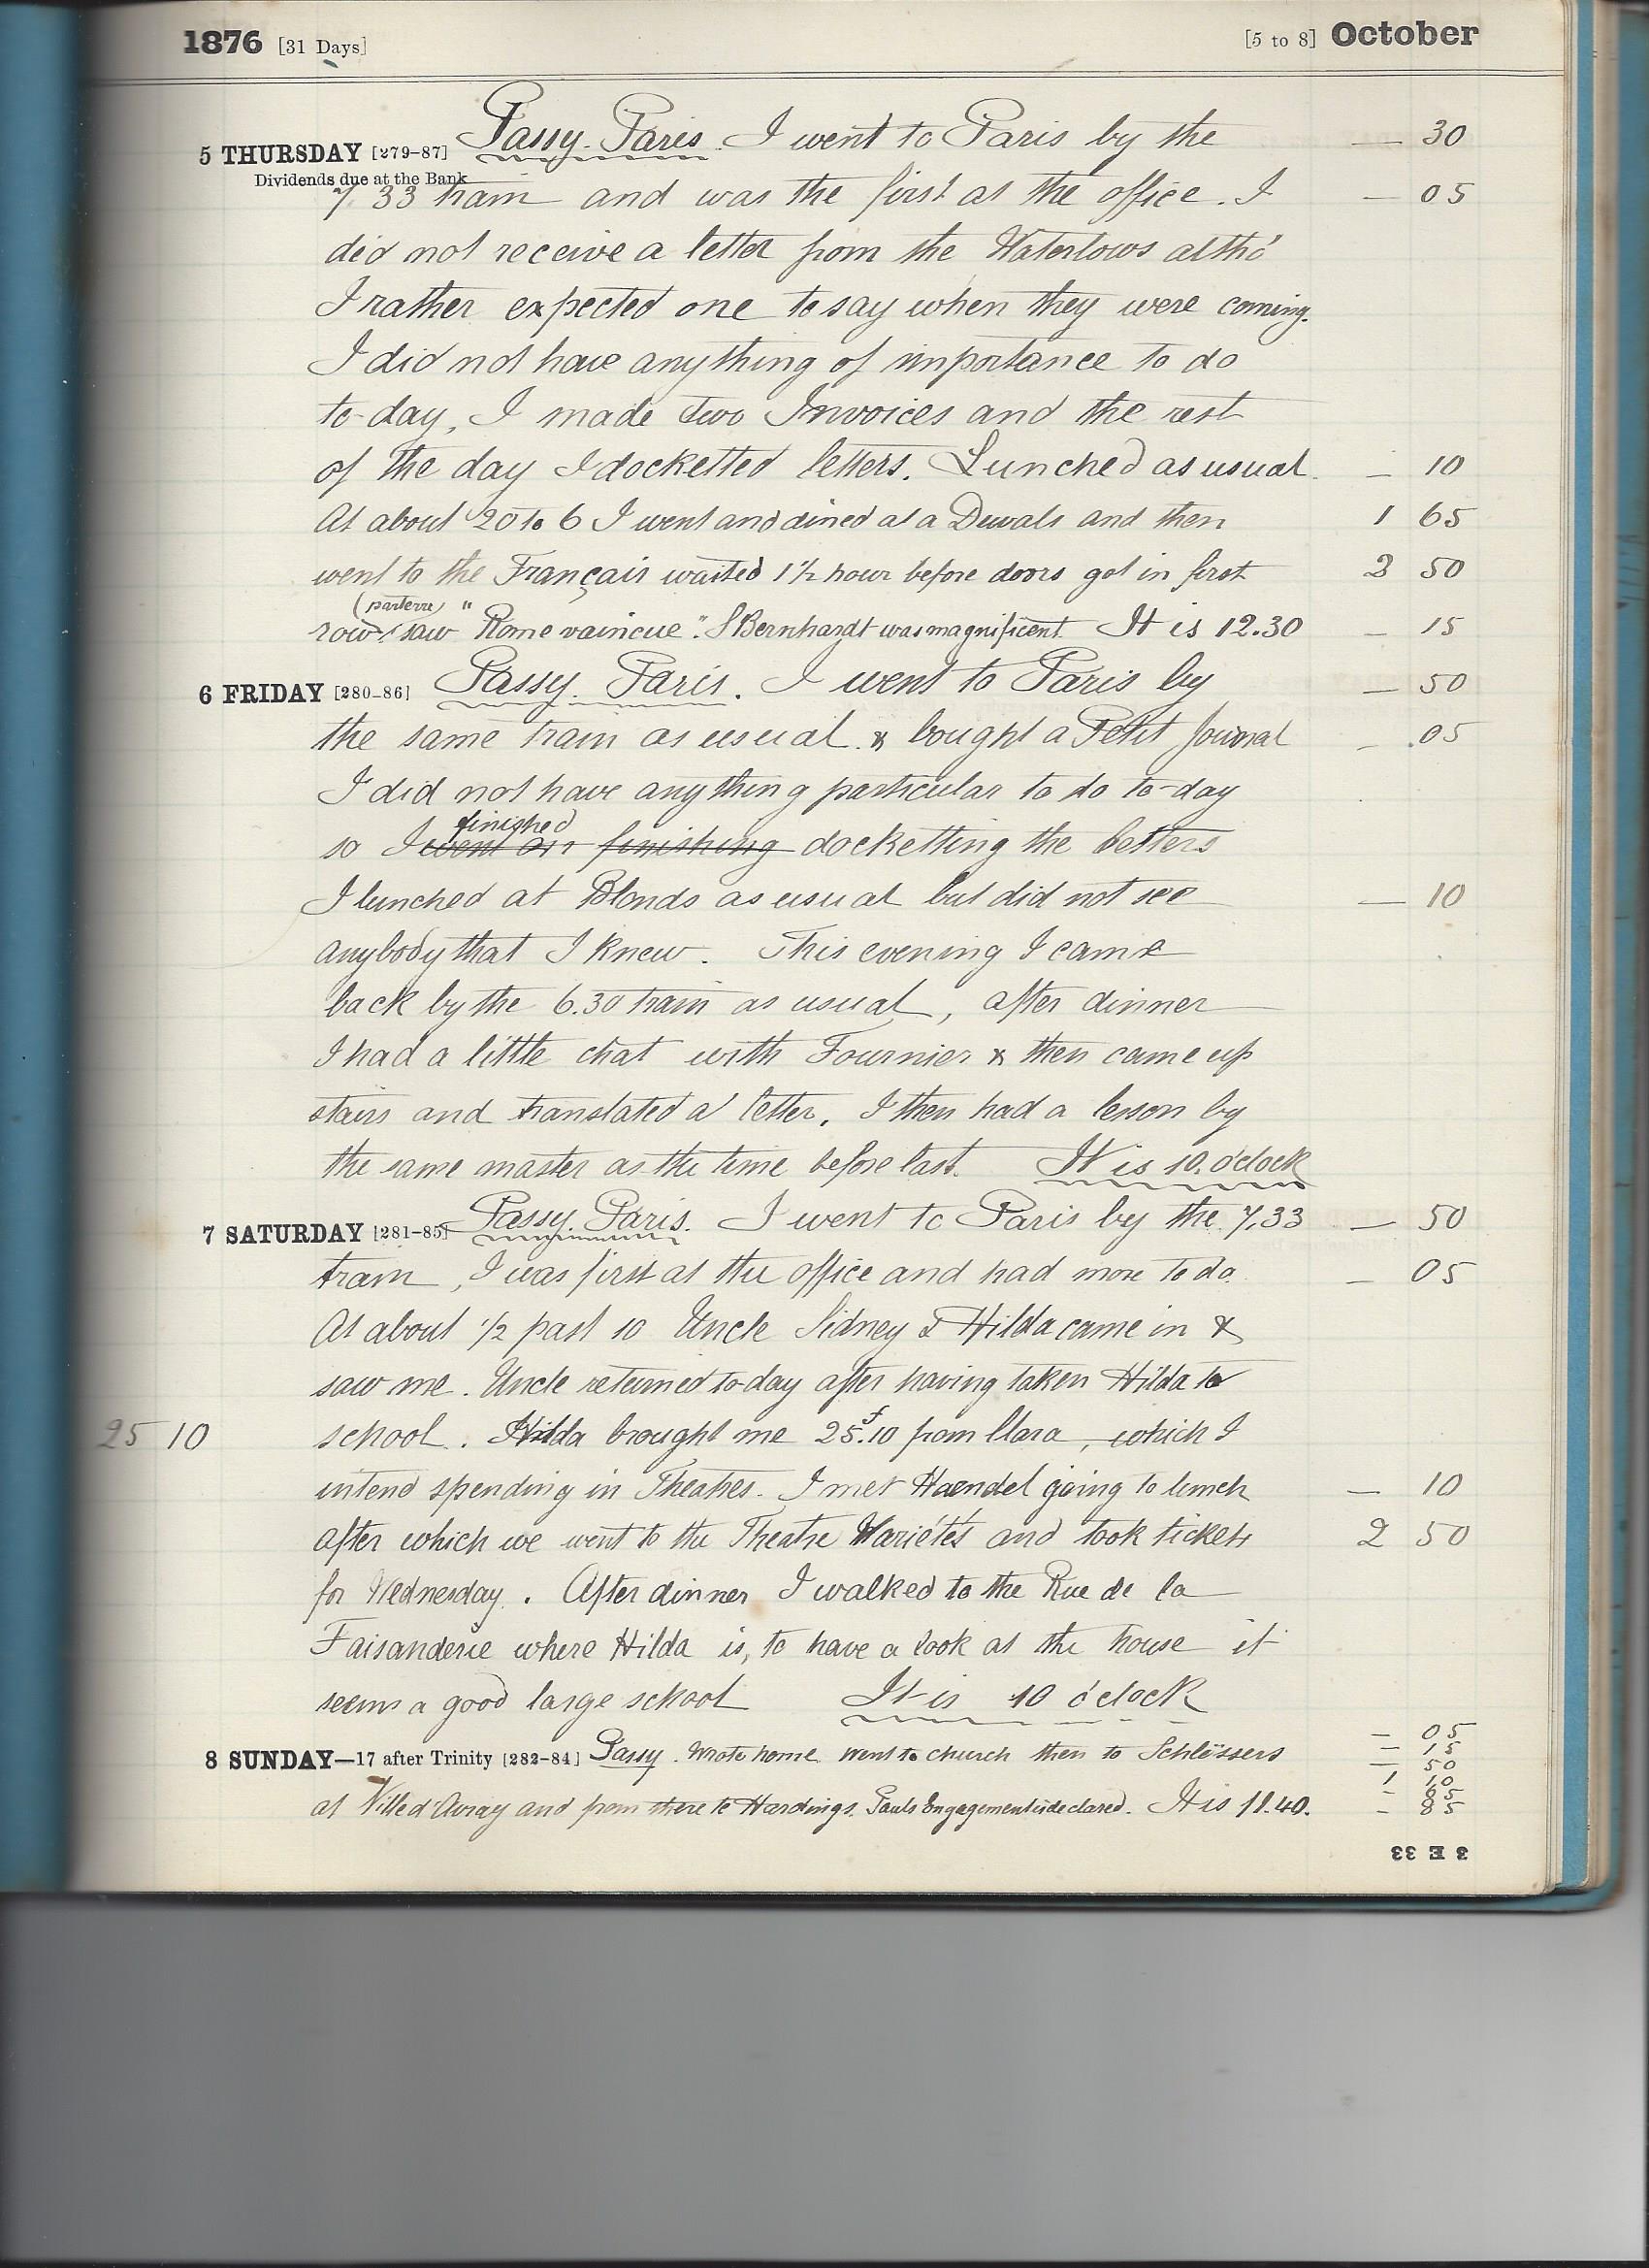 1876 [31 Days] [5 to 8] October
5 THURSDAY [279-87] Passy. Paris. I went to Paris by the — 30
Dividends due at the Bank
7.33 train and was the first at the office. I — 05
did not receive a letter from the Waterlows altho'
I rather expected one to say when they were coming.
I did not have anything of importance to do
to-day, I made two Invoices and the rest
of the day I docketted letters. Lunched as usual. — 10
At about 20 to 6 I went and dined at a Duvals and then 1 65
went to the Français waited 1½ hour before doors got in first 2 50
(parterre)
row saw "Rome vaincue". S Bernhardt was magnificent. It is 12.30 — 15
6 FRIDAY [280-86] Passy. Paris. I went to Paris by — 50
the same train as usual & bought a Petit Journal — .05
I did not have anything particular to do to-day
finished
so I went on finishing docketting the letters
I lunched at Blonds as usual but did not see — 10
anybody that I knew. This evening I came
back by the 6.30 train as usual, after dinner
I had a little chat with Fournier & then came up
stairs and translated a letter. I then had a lesson by
the same master as the time before last. It is 10. o'clock
7 SATURDAY [281-85] Passy. Paris. I went to Paris by the 7.33 — 50
train, I was first at the office and had more to do. — 05
At about ½ past 10 Uncle Sidney & Hilda came in &
saw me. Uncle returned to-day after having taken Hilda to
25 10 school. Hilda brought me 25f.10 from Clara, which I
intend spending in Theatres. I met Haendel going to lunch — 10
after which we went to the Theatre Variétés and took tickets 2 50
for Wednesday. After dinner I walked to the Rue de la
Faisanderie where Hilda is, to have a look at the house it
seems a good large school It is 10 o'clock
8 SUNDAY—17 after Trinity [282-84] Passy. Wrote home. Went to church then to Schlössers
at Ville d'Avray and from there to Hardings. Pauls Engagement is declared. It is 11.40.
— 05
— 15
— 50
1 10
- 65
- 85
3 E 33